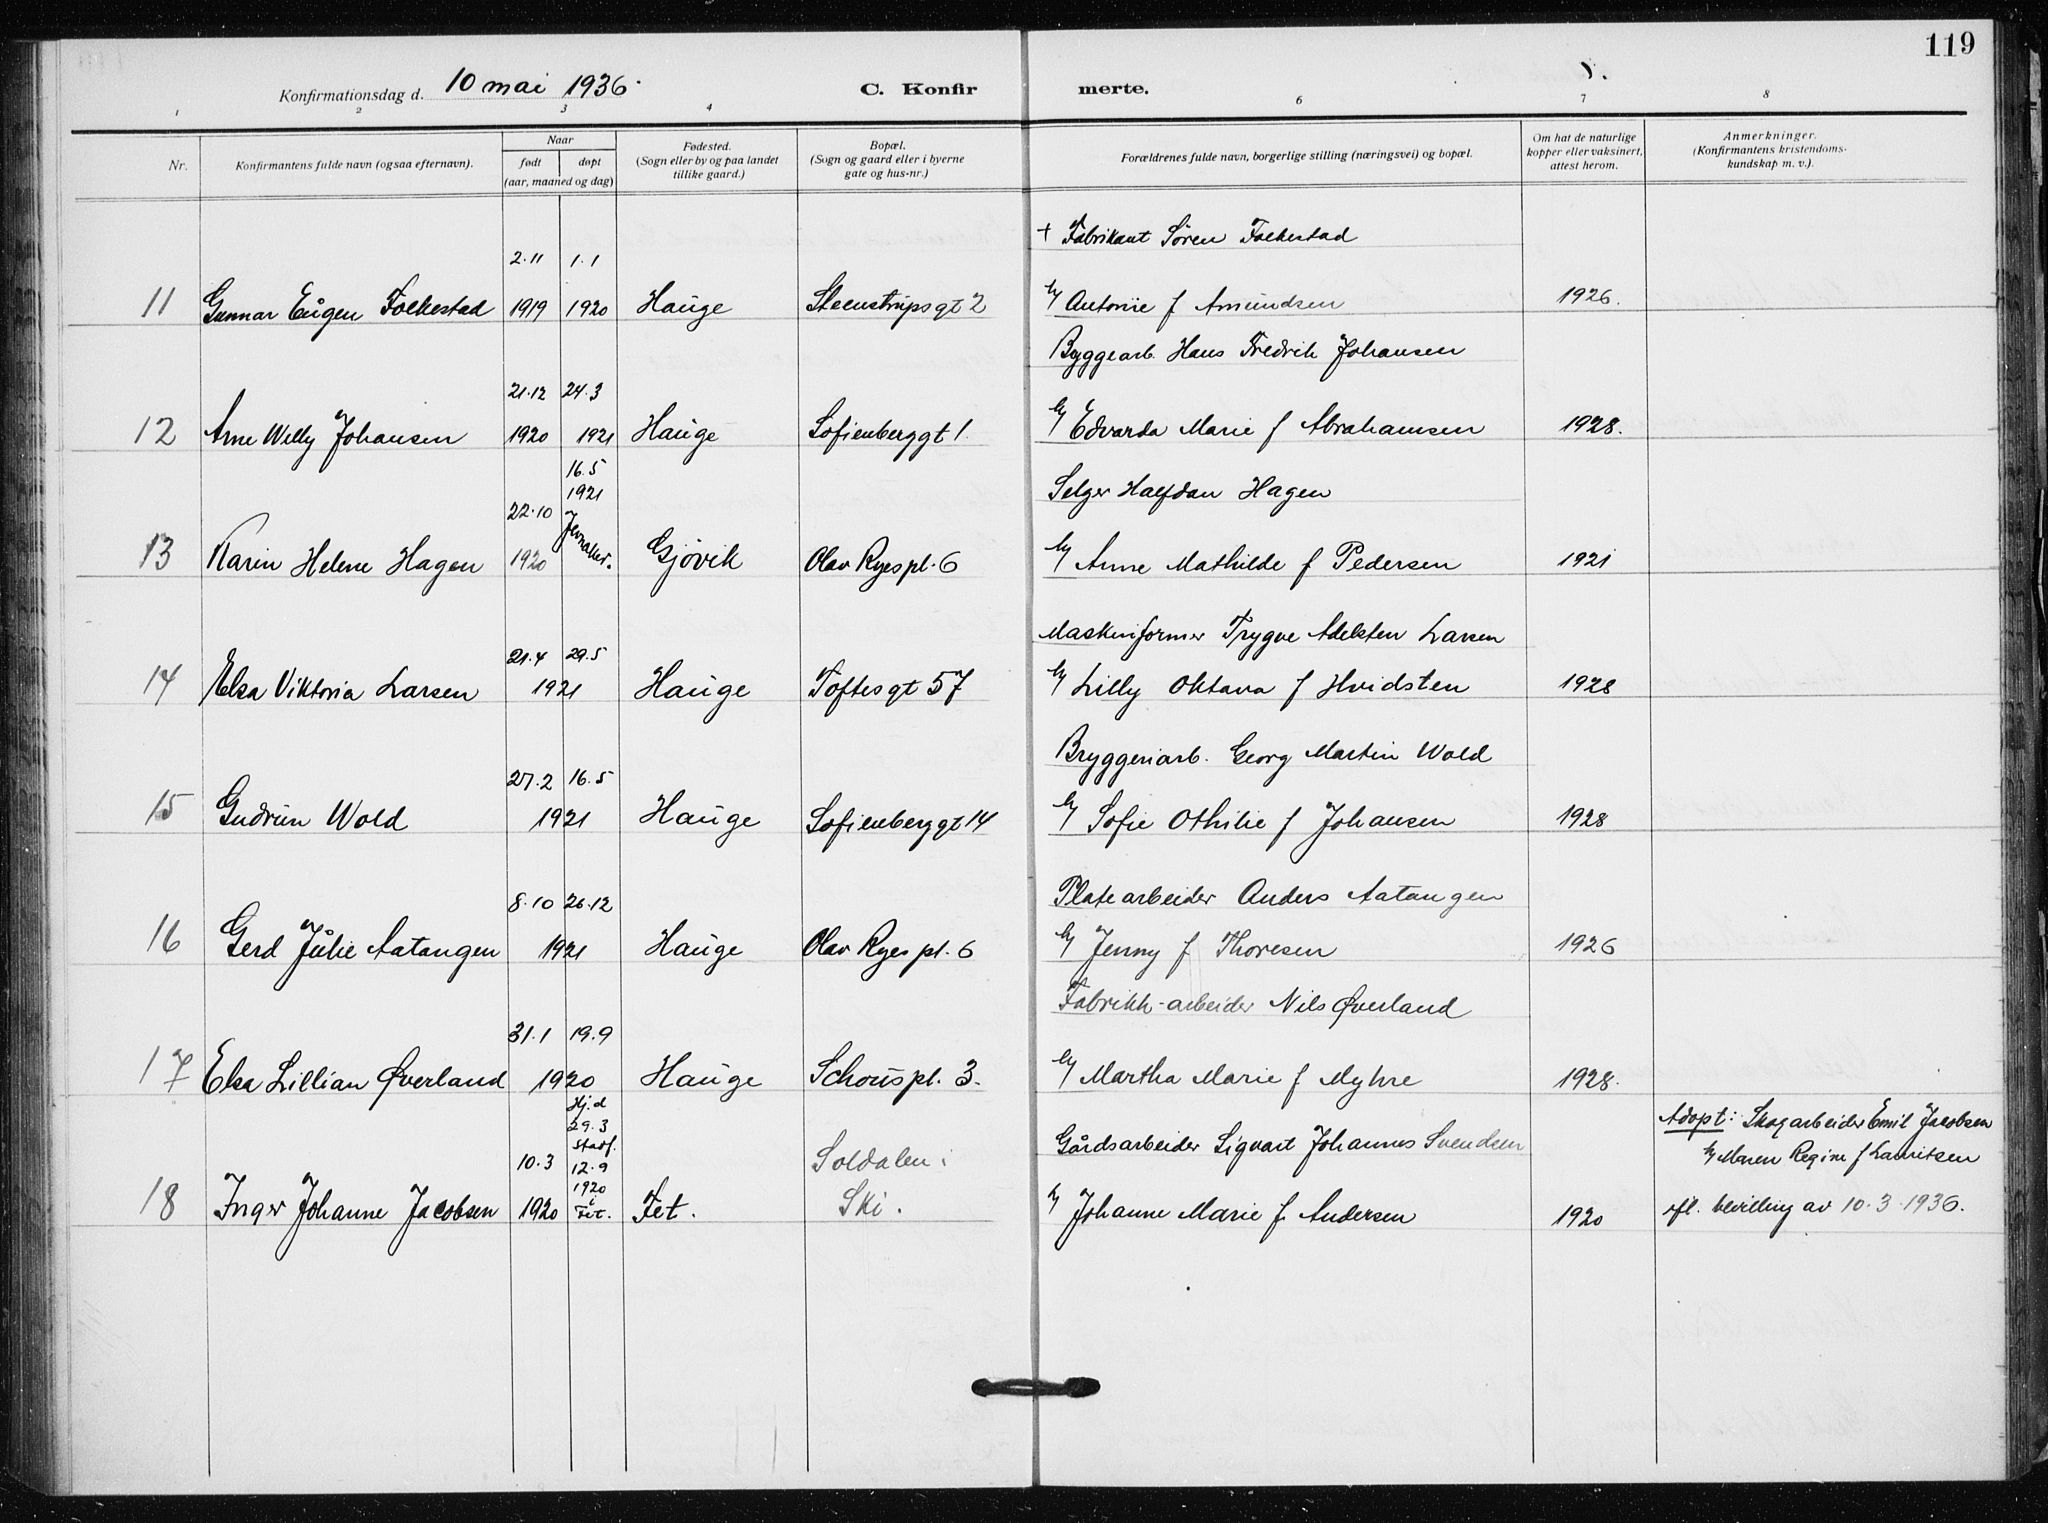 119
Konfirmationsdag d. 10 mai 1936.
C. Konfirmerte.
1 2 3 4 6 7 8
Nr.
Konfirmantens fulde navn (ogsaa efternavn).
Naar
født døpt
(aar, maaned og dag)
Fødested.
(Sogn eller by og paa landet
tillike gaard.)
Bopæl.
(Sogn og gaard eller i byerne
gate og hus-nr.)
Forældrenes fulde navn, borgerlige stilling (næringsvei) og bopæl.
Om hat de naturlige
kopper eller vaksinert,
attest herom.
Anmerkninger.
(Konfirmantens kristendoms-
kundskap m. v.).
+ Fabrikant Søren Folkestad
2.11 1.1
11 Gunnar Eugen Folkestad 1919 1920 Hauge Steenstrupsgt 2 & Antonie f Amundsen 1926.
Byggearb. Hans Fredrik Johansen
21.12 24.3
12 Arne Willy Johansen 1920 1921 Hauge Sofienberggt 1. & Edvarda Marie f Abrahamsen 1928.
16.5
1921
Selger Halfdan Hagen
22.10 Jevnaker.
13 Karin Helene Hagen 1920 Gjøvik Olav Ryes pl. 6 & Anne Mathilde f Pedersen 1921
Maskinformer Trygve Adelsten Larsen
21.4 29.5
14 Elsa Viktoria Larsen 1921 Hauge Toftesgt 57 & Lilly Oktava f Hvidsten 1928
Bryggeriarb. Georg Martin Wold
27.2 16.5
15 Gudrun Wold 1921 Hauge Sofienberggt 14 & Sofie Othilie f Johansen 1928
Platearbeider Anders Aatangen
8.10 26.12
16 Gerd Julie Aatangen 1921 Hauge Olav Ryes pl. 6 & Jenny f Thoresen 1926
Fabrikk-arbeider Nils Øverland
31.1 19.9
17 Elsa Lillian Øverland 1920 Hauge Schous pl. 3. & Martha Marie f Myhre 1928.
Hj.d
29.3
Stadf.
12.9
1920
i
Fet.
Gårdsarbeider Sigvart Johannes Svendsen
Adopt: Skogarbeider Emil Jacobsen
& Maren Regine f Lauritsen
10.3 Soldalen i
18 Inger Johanne Jacobsen 1920 Fet. Ski. & Johanne Marie f. Andersen 1920 ifl. bevilling av 10.3.1936.